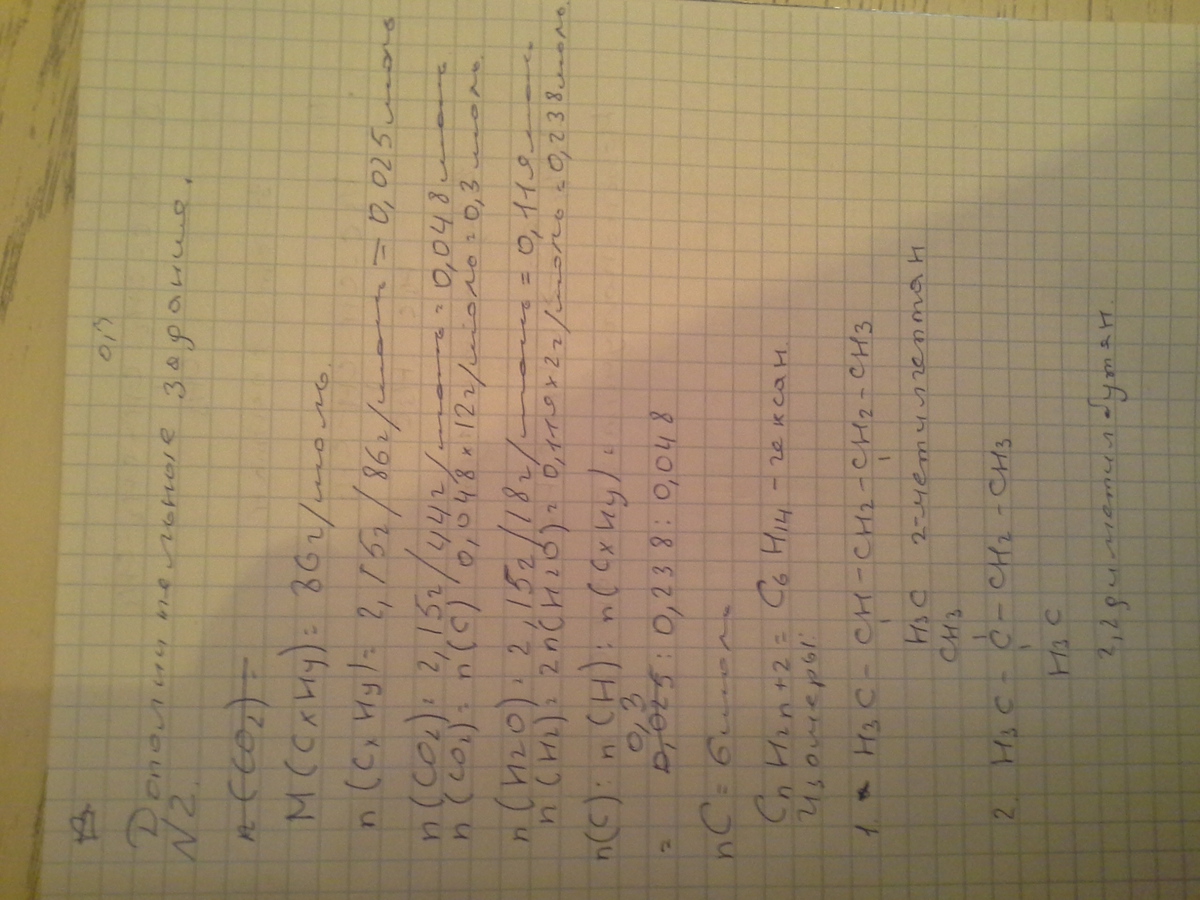 0,3
Дополнительные задания.
№2.
n(CO2)=
M(CxHy)= 86г/моль
n(CxHy)= 2,15г/86г/моль = 0,025моль
n(CO2)= 2,15г/44г/моль= 0,048моль
n(CO2)= n(C) 0,048×12г/моль=0,3моль
n(H2O)= 2,15г/18г/моль= 0,119моль
n(H2)= 2n(H2O)= 0,119×2г/моль=0,238моль
n(C): n(H): n(CxHy)=
0,3
= 0,025: 0,238: 0,048
nC= 6моль
CnH2n+2= C6H14 - гексан
Изомеры:
1. H3C - CH - CH2 - CH2 - CH3
H3C 2-метилгептан
CH3
2. H3C - C - CH2 - CH3
H3C
2,2диметилбутан